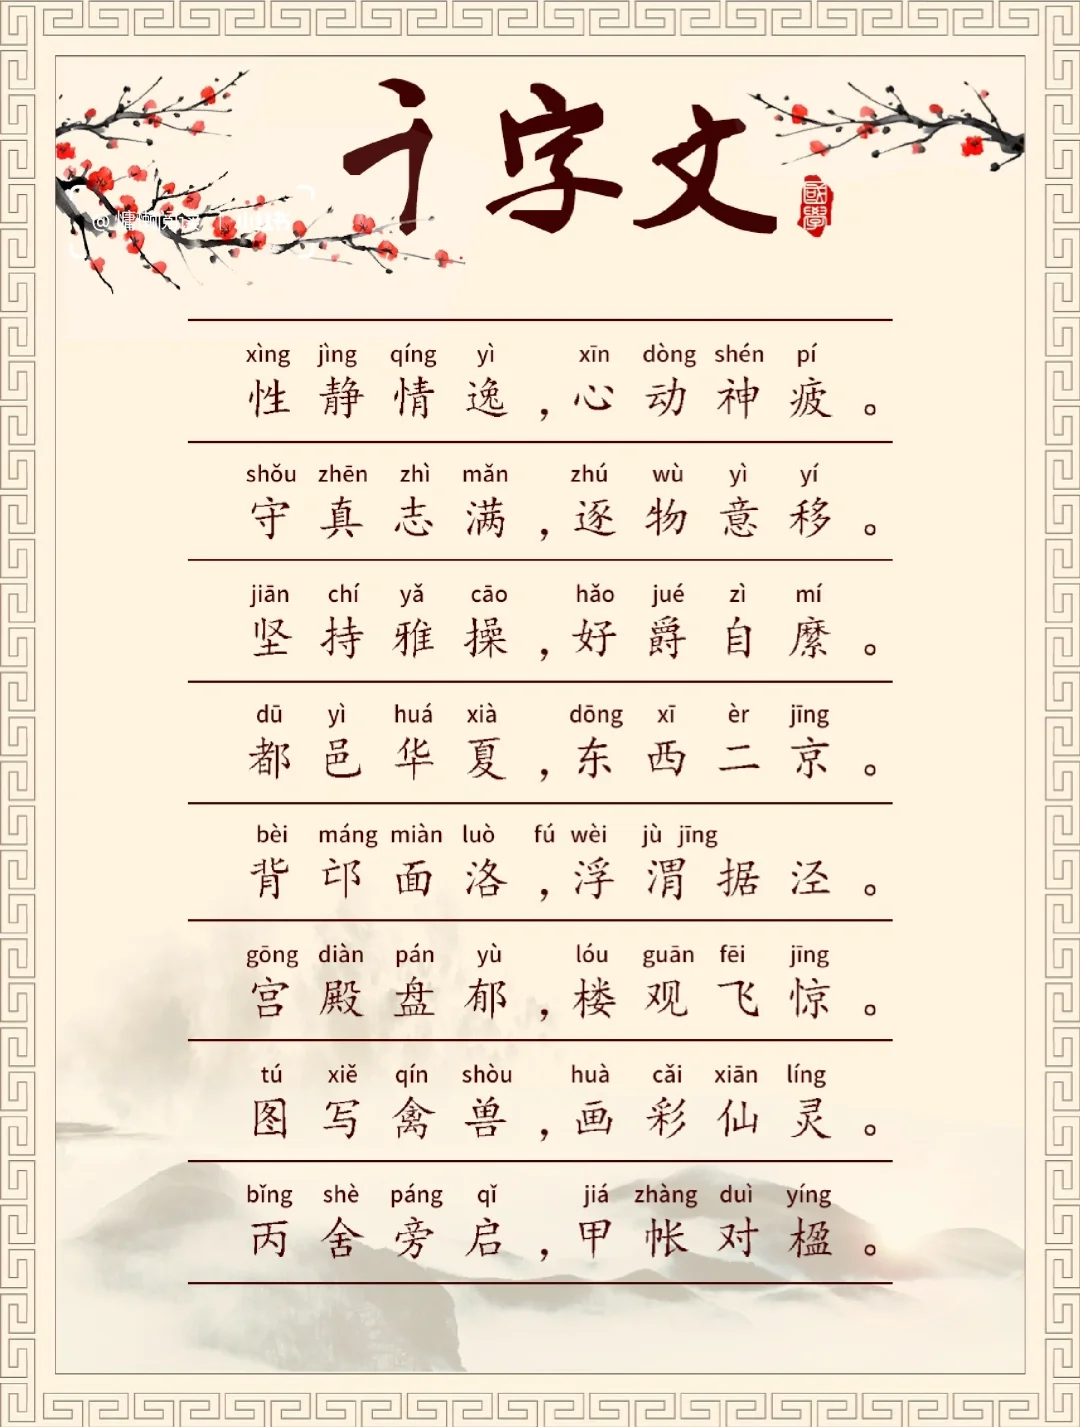 千字文
國學
xìng jìng qíng yì xīn dòng shén pí
性静情逸，心动神疲。
shǒu zhēn zhì mǎn zhú wù yì yí
守真志满，逐物意移。
jiān chí yǎ cāo hǎo jué zì mí
坚持雅操，好爵自縻。
dū yì huá xià dōng xī èr jīng
都邑华夏，东西二京。
bèi máng miàn luò fú wèi jù jīng
背邙面洛，浮渭据泾。
gōng diàn pán yù lóu guān fēi jīng
宫殿盘郁，楼观飞惊。
tú xiě qín shòu huà cǎi xiān líng
图写禽兽，画彩仙灵。
bǐng shè páng qǐ jiá zhàng duì yíng
丙舍旁启，甲帐对楹。